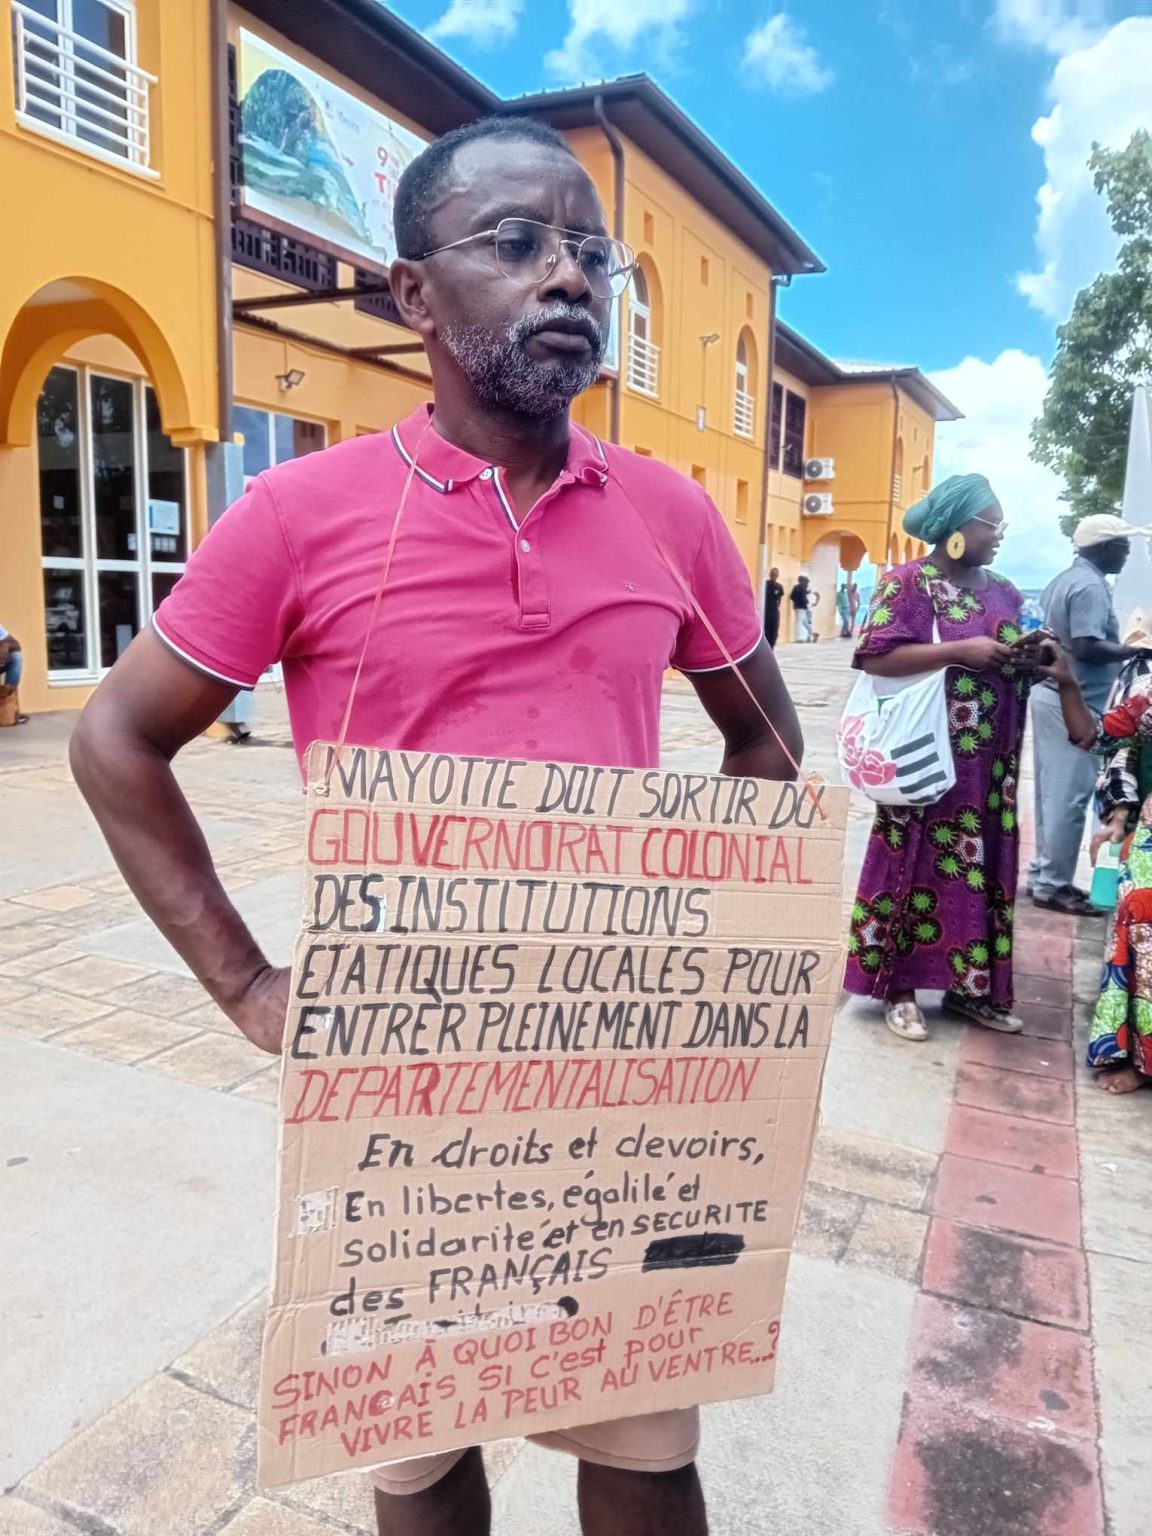 9
T
MAYOTTE DOIT SORTIR DU
GOUVERNORAT COLONIAL
DES INSTITUTIONS
ETATIQUES LOCALES POUR
ENTRER PLEINEMENT DANS LA
DEPARTEMENTALISATION
En droits et devoirs,
En libertes, égalité et
solidarité et en SECURITE
des FRANÇAIS
SINON À QUOI BON D'ÊTRE
FRANCAIS SI C'est pour
VIVRE LA PEUR AU VENTRE...?